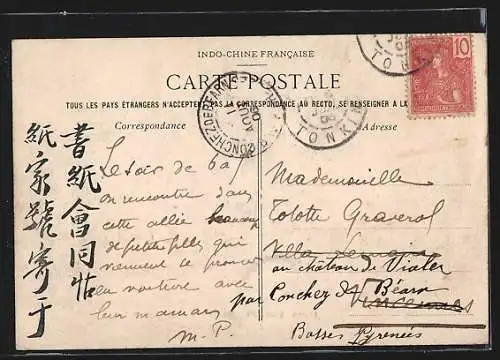 INDO-CHINE FRANÇAISE
CARTE POSTALE
TOUS LES PAYS ÉTRANGERS N'ACCEPTENT PAS LA CORRESPONDANCE AU RECTO, SE RENSEIGNER A LA
Correspondance
Adresse
10
TONKIN
TONKIN
書紙會同帖
紙家號寄于
Le soir de bal
on rencontre dans
cette allée beaucoup
de petites filles qui
viennent se promener
en voiture avec
leur maman
M. P.
Mademoiselle
Tototte Graverol
Villa
au château de Viater
par Conchez de Béarn
Vincennes
Basses Pyrenées